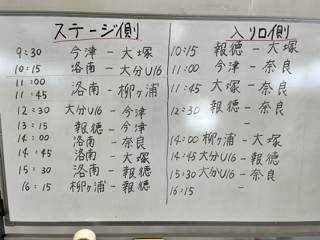 ステージ側
9:30 今津 - 大塚
10:15 洛南 - 大分U16
11:00
11:45 洛南 - 柳ヶ浦
12:30 大分U16 - 今津
13:15 報徳 - 今津
14:00 洛南 - 奈良
14:45 洛南 - 大塚
15:30 洛南 - 報徳
16:15 柳ヶ浦 - 報徳
入り口側
10:15 報徳 - 大塚
11:00 今津 - 奈良
11:45 大塚 - 奈良
12:30 報徳 - 奈良
14:00 柳ヶ浦 - 大塚
14:45 大分U16 - 報徳
15:30 大分U16 - 奈良
16:15 -